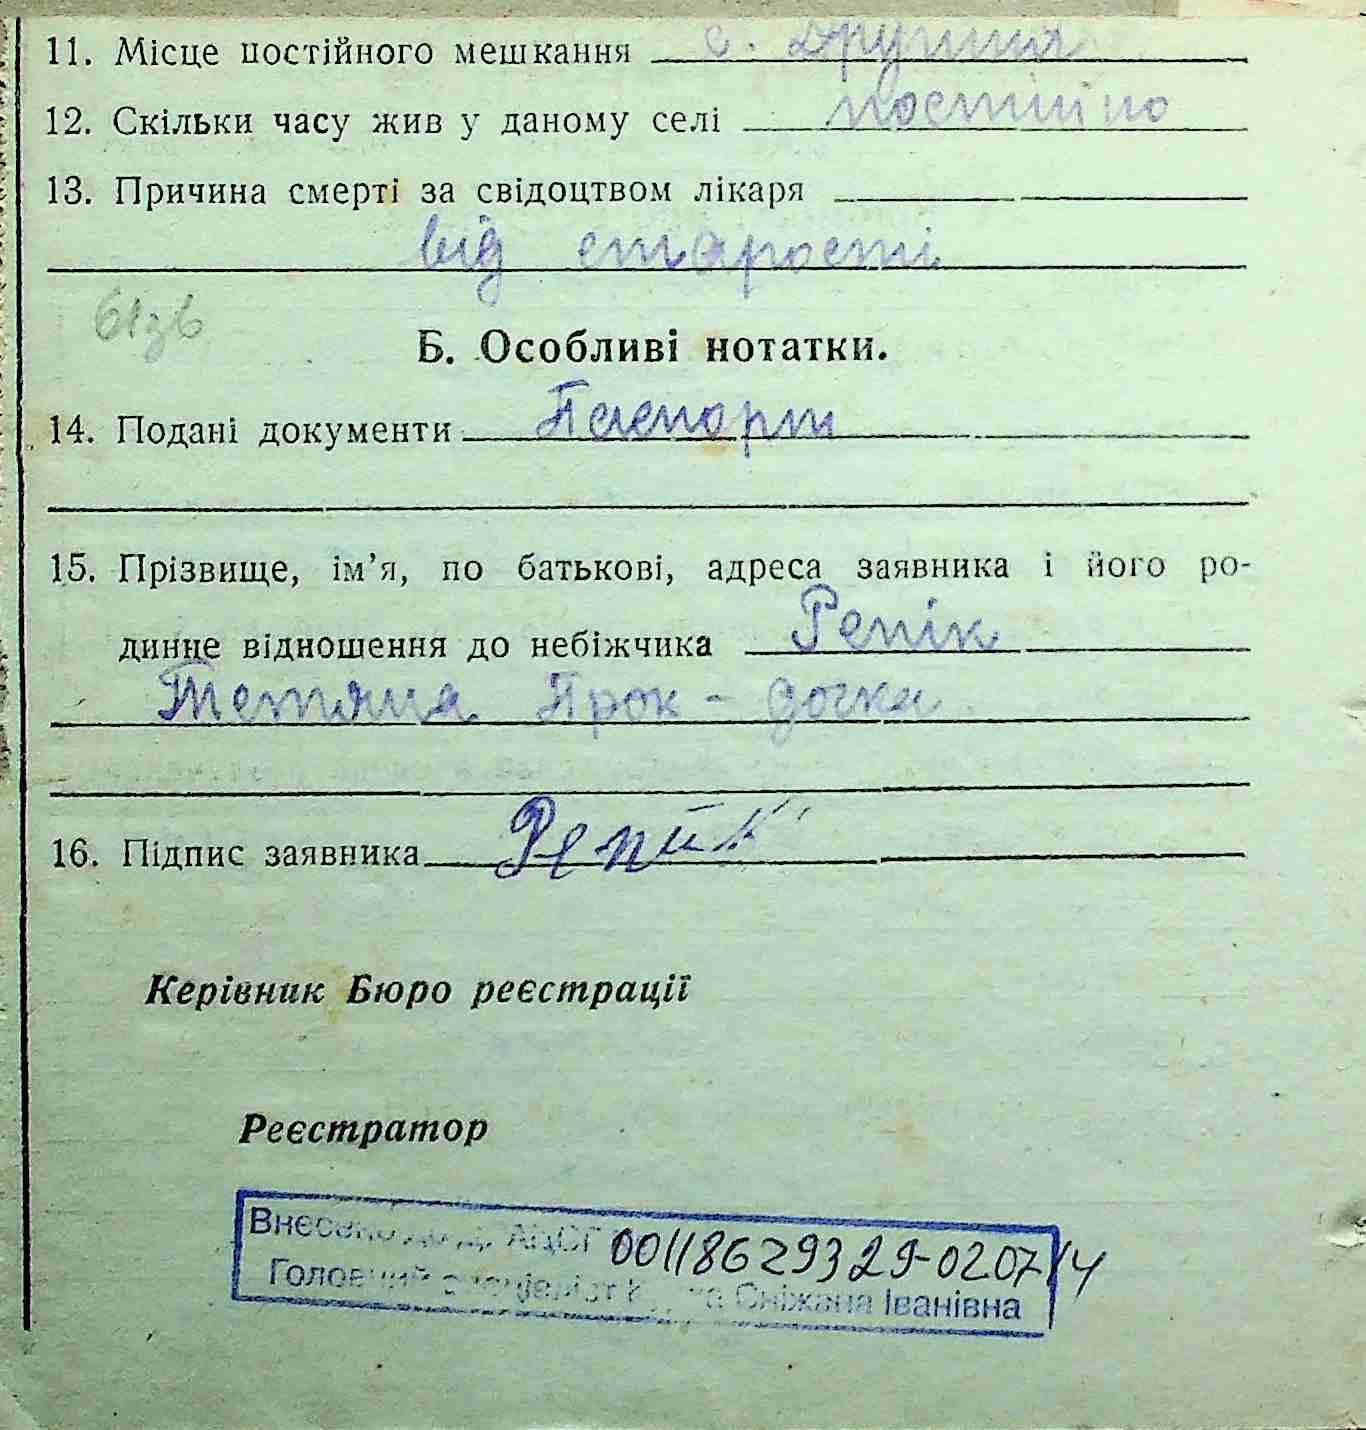 11. Місце постійного мешкання с. Друшня
12. Скільки часу жив у даному селі постійно
13. Причина смерті за свідоцтвом лікаря
від старості
Б. Особливі нотатки.
14. Подані документи Паспорт
15. Прізвище, ім'я, по батькові, адреса заявника і його ро-
динне відношення до небіжчика Репік
Тетяна Прок - дочка
16. Підпис заявника Репик
Керівник Бюро реєстрації
Реєстратор
Внесено до ДРАЦСГ 00118629329-0207/14
Головний спеціаліст Сніжана Іванівна